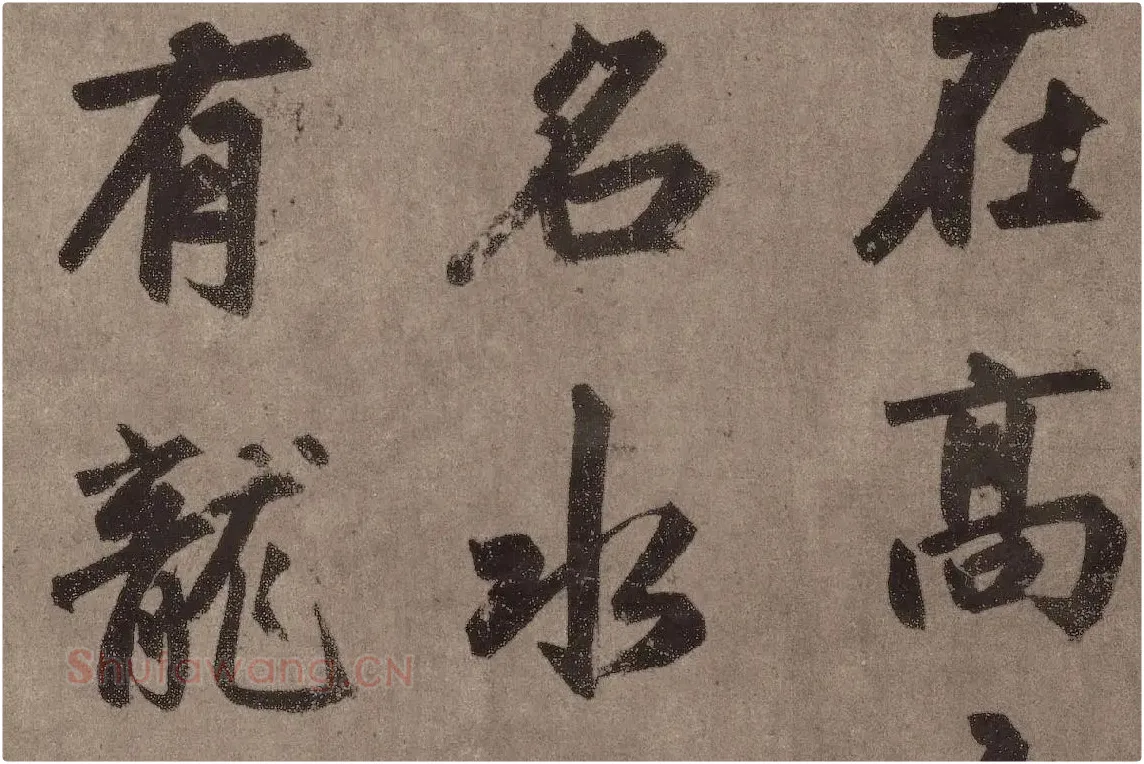 在高
名水
有龍
Shufawang.CN